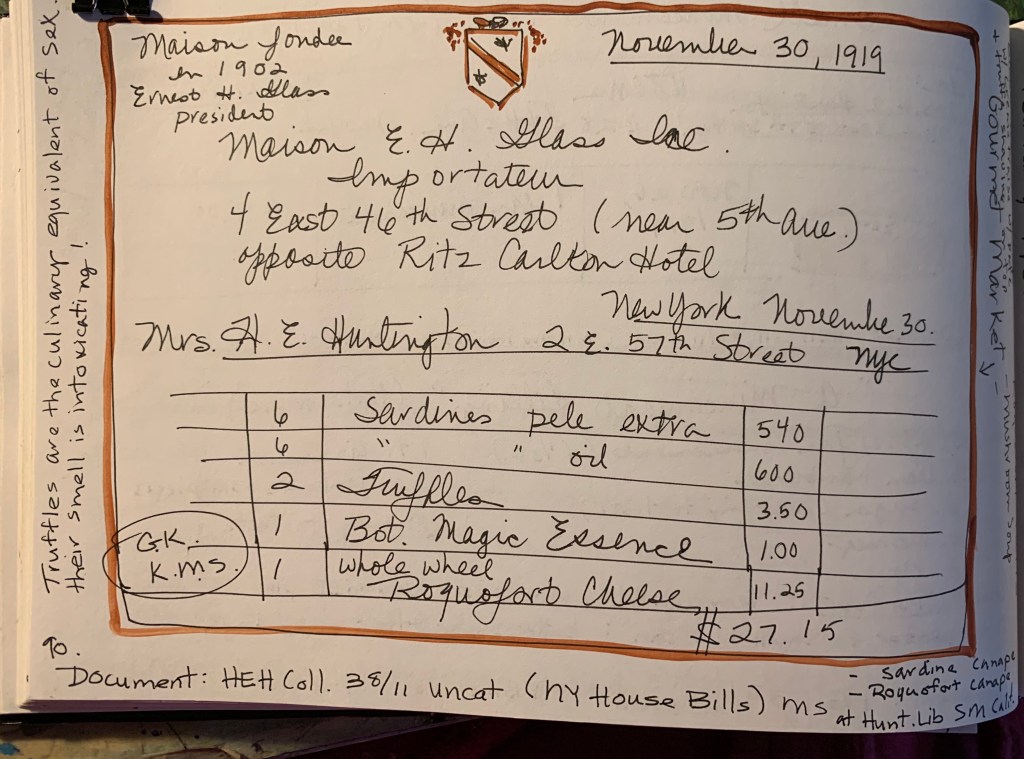 Maison fondee
en 1902
Ernest H. Glass
president
November 30, 1919
Maison E. H. Glass Inc.
Importateur
4 East 46th Street (near 5th Ave.)
opposite Ritz Carlton Hotel
New York November 30.
Mrs. H. E. Huntington 2 E. 57th Street NYC
6 Sardines pele extra 540
6 " " oil 600
2 Truffles 3.50
1 Bot. Magic Essence 1.00
G.K.
K.M.S.
1 whole wheel
Roquofort Cheese 11.25
$27.15
Truffles are the culinary equivalent of sex.
their smell is intoxicating!
TO.
Document: HEH Coll. 38/11 uncat (NY House Bills) ms at Hunt. Lib SM Calif.
- Sardine canape
- Roquofort canape
+ Gourmet Market